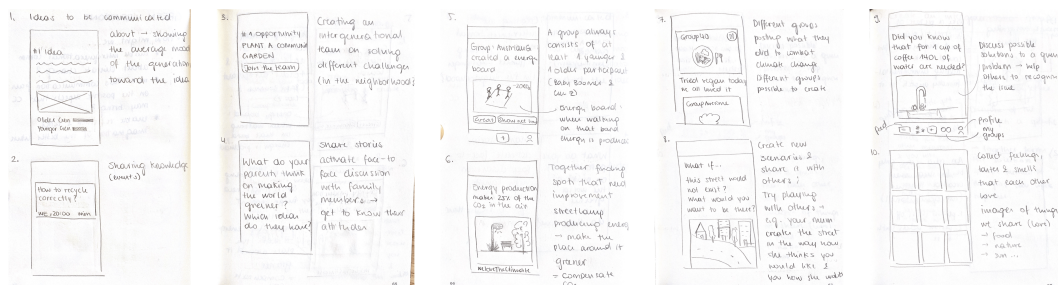 1. Ideas to be communicated
about → showing
the average mood
of the generation
toward the idea
#1 idea
Older Gen
Younger Gen
2.
Sharing knowledge
(events)
How to recycle
correctly?
we, 20:00
3.
Creating an
intergenerational
team on solving
different challenges
(in the neighborhood)
#1 opportunity
PLANT A COMMUN
GARDEN
Join the team
4.
What do your
parents think
on making
the world
greener?
Which ideas
do they have?
share stories
activate face-to
face discussion
with family
members →
get to know their
attitudes
5.
Group
created a energy
board
Great
A group always
consists of at
least 1 younger &
1 older participant
(Baby Boomer &
Gen Z)
energy board -
when walking
on that board
energy is produced
6.
Energy production
makes 25% of the
CO2 in the air
Together finding
spots that need
improvement
streetlamp
producing energy
→ make the
place around it
greener
= compensate
CO2
7.
Tried vegan today
Group Awesome
Different groups
posting what they
did to combat
climate change
Different groups
possible to create
8.
What if...
this street would
not exist?
What would you
want to be there?
Create new
scenarios &
share it with
others!
Try playing
with others →
e.g. your mum
creates the street
in the way how
she thinks you
would like &
you how she would
9.
Did you know
that for 1 cup of
coffee 140L of
water are needed?
Discuss possible
solutions to a given
problem → help
others to recognize
the issue
feed
Profile
my
groups
10.
collect feelings,
tastes & smells
that each other
love
images of things
we share (love)
→ food
→ nature
→ sun ...